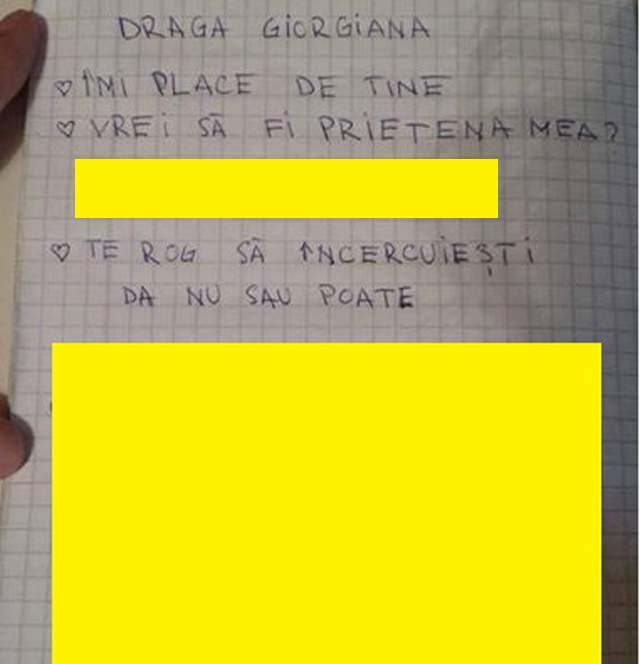 DRAGA GIORGIANA
♡ ÎMI PLACE DE TINE
♡ VREI SĂ FI PRIETENA MEA?
♡ TE ROG SĂ ÎNCERCUIEȘTI
DA NU SAU POATE